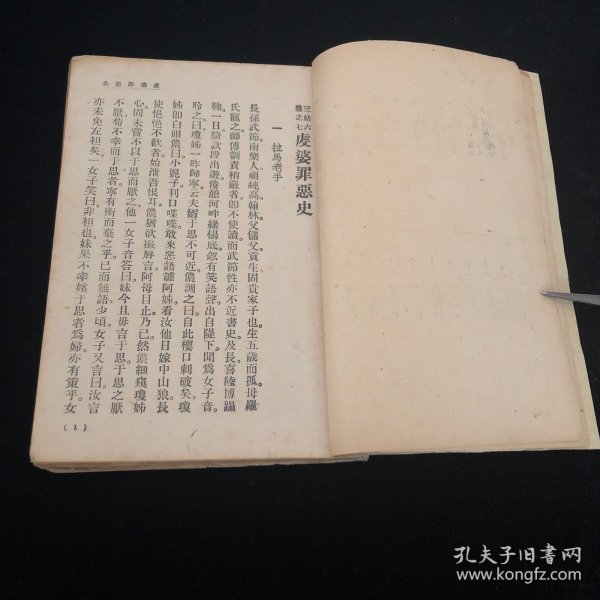 三姑六
婆之七
虔婆罪惡史
一 拉馬老手
長孫武節南樂人祖純高翰林父儒父貢生固貴家子也生五歲而孤母羅
氏寵之師傅訓責稍嚴者卽不使讀而武節性亦不近書史及長喜陸博蹋
鞠一日騎款段出遊倦憩河畔綠楊底忽有笑語聲出自隄下聞爲女子音
聆之曰瓊姊一昨歸寧云夫壻于思不可近儂調之曰自此櫻口刺破矣瓊
姊卽白眼儂曰小妮子利口喋喋敢來惡語謔阿姊看汝他日嫁中山狼長
使悒悒不歡者始泄吾恨耳儂猶欲撥脣言阿母目止乃已然儂細窺瓊姊
心固未嘗不以于思而厭之他一女子音答曰妹今且毋言于思于思之厭
不厭苟不幸而于思者寧有術而棄之乎已而無語少頃女子又言曰汝言
亦未免左袒矣一女子笑曰非袒也妹果不幸嬪于思者爲婦亦有策乎女
虔婆罪惡史
(1)
孔夫子旧书网
www.kongfz.com